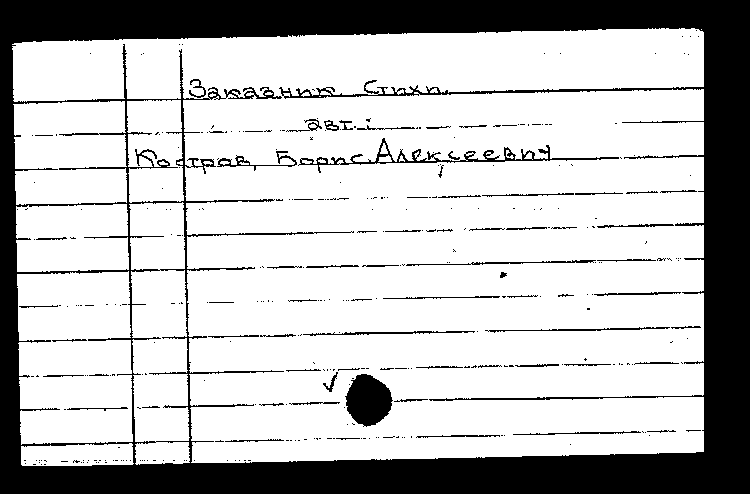 Заказник. Стихи.
авт.:
Костров, Борис Алексеевич